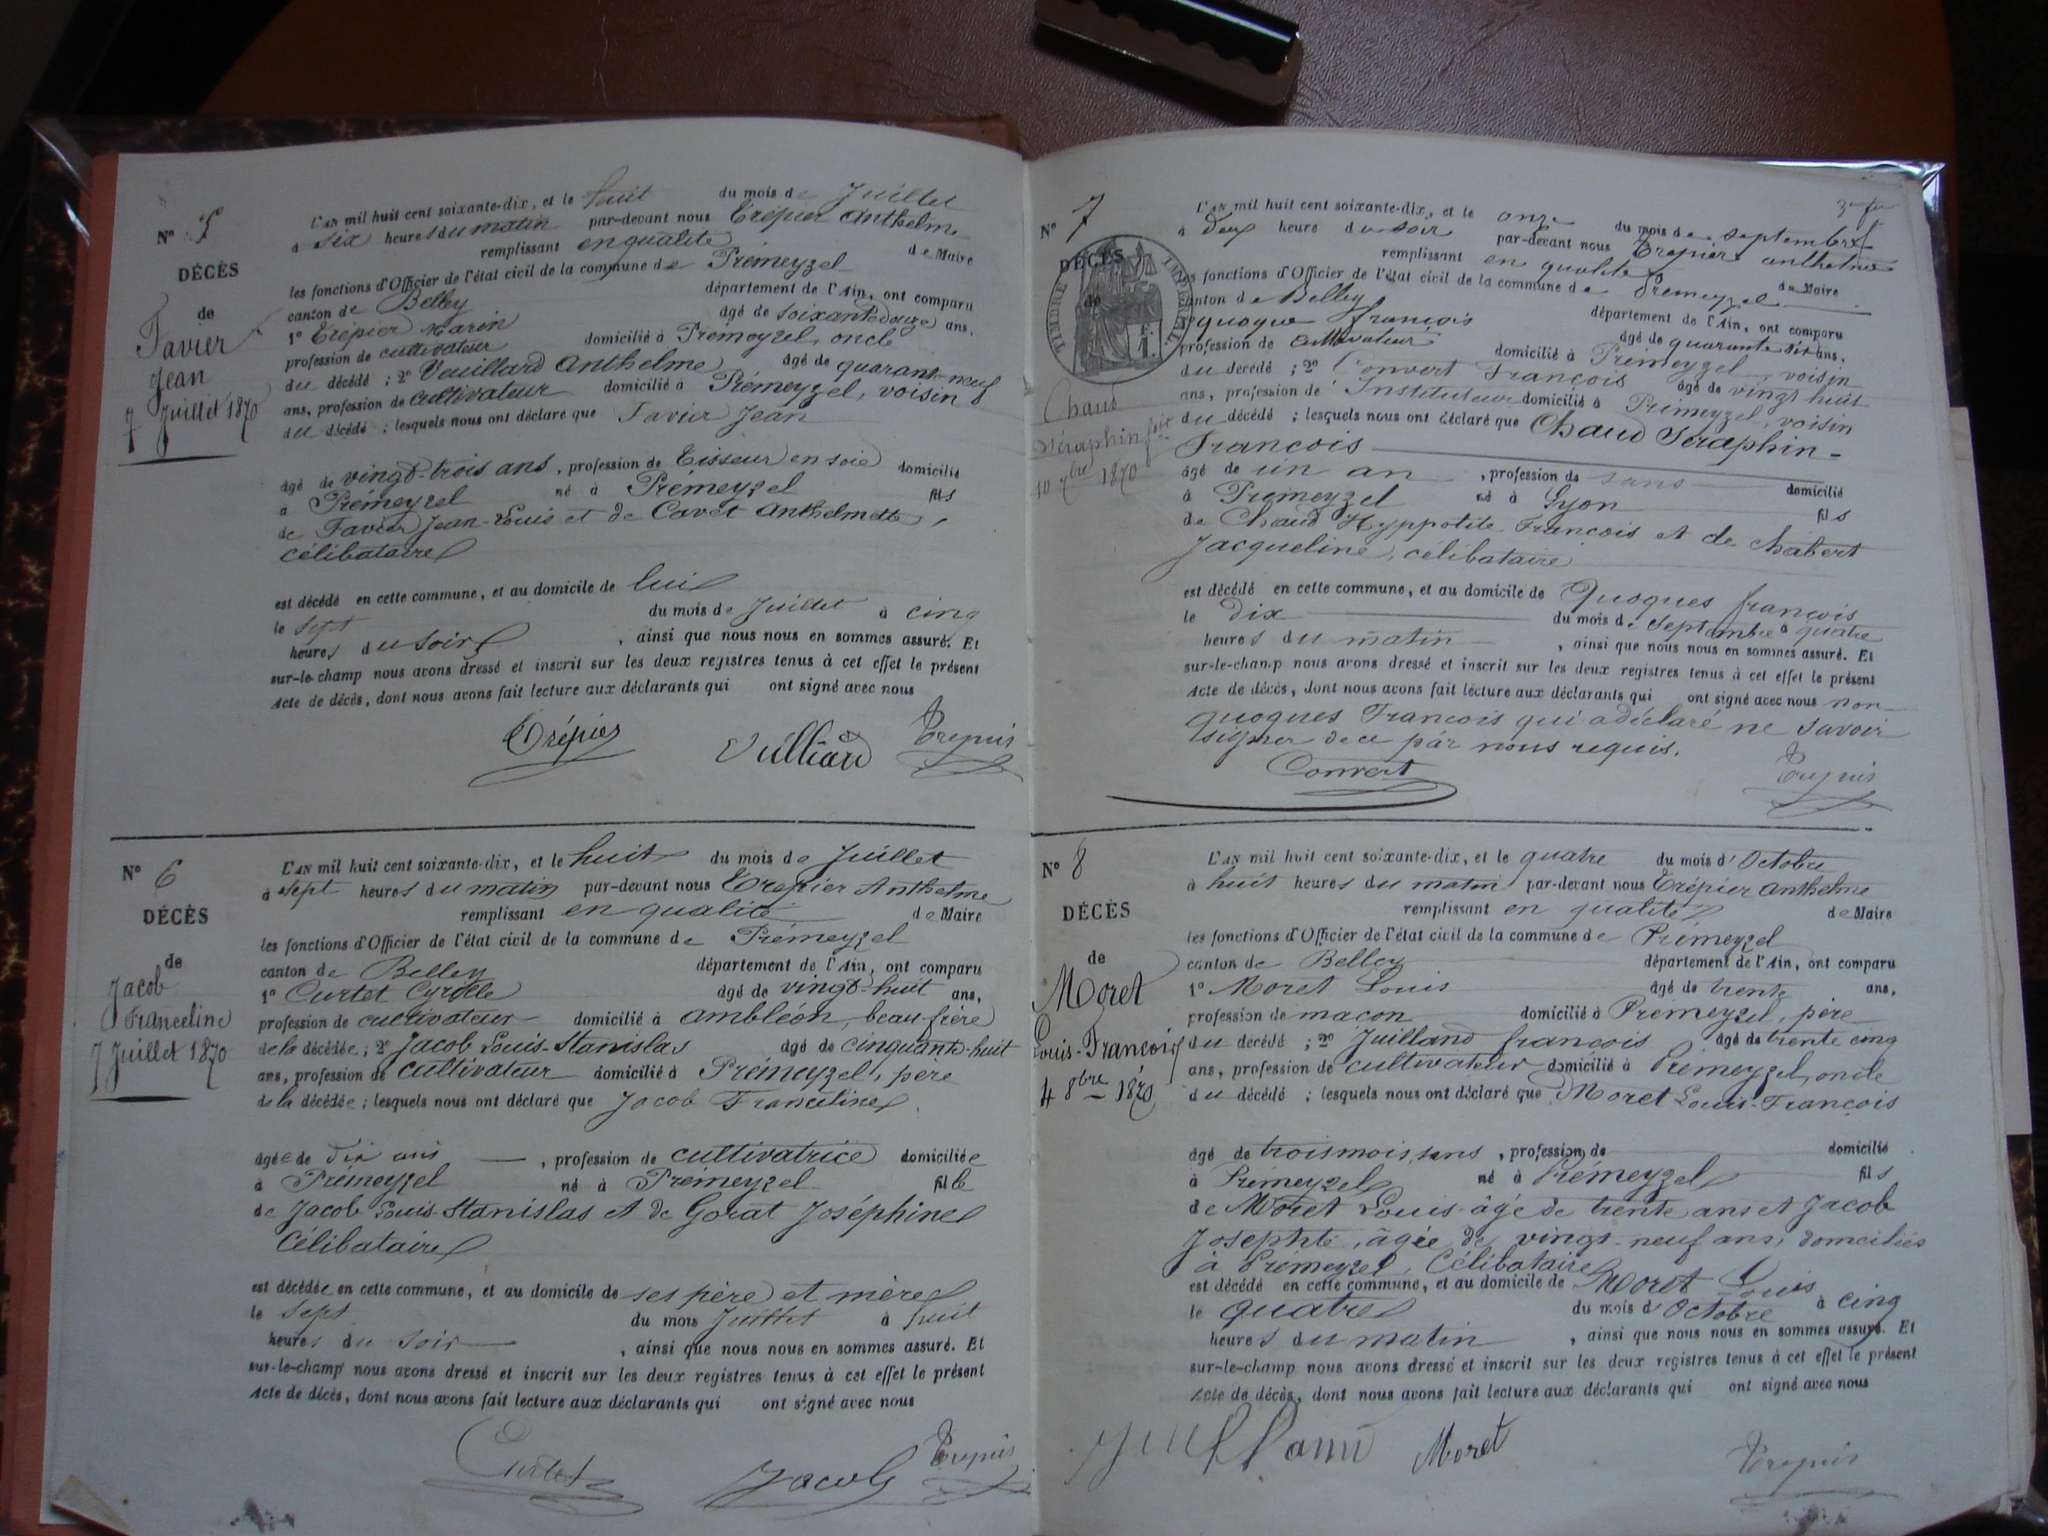 N° 5
DÉCÈS
de
Favier
Jean
7 Juillet 1870
L'AN mil huit cent soixante-dix, et le huit du mois de Juillet
à six heures du matin par-devant nous Trépier Anthelme
remplissant en qualité de Maire
les fonctions d'Officier de l'état civil de la commune de Prémeyzel
canton de Belley département de l'Ain, ont comparu
1° Trépier Marin âgé de soixante douze ans,
profession de cultivateur domicilié à Prémeyzel, oncle
du décédé ; 2° Veuillard Anthelme âgé de quarante-neuf
ans, profession de cultivateur domicilié à Prémeyzel, voisin
du décédé ; lesquels nous ont déclaré que Favier Jean
âgé de vingt-trois ans, profession de Tisseur en soie domicilié
à Prémeyzel né à Prémeyzel fils
de Favier Jean-Louis et de Cavet Anthelmette,
célibataire
est décédé en cette commune, et au domicile de lui
le sept du mois de Juillet à cinq
heures du soir, ainsi que nous nous en sommes assuré. Et
sur-le-champ nous avons dressé et inscrit sur les deux registres tenus à cet effet le présent
Acte de décès, dont nous avons fait lecture aux déclarants qui ont signé avec nous
Trépier Vulliard Trepier
N° 6
DÉCÈS
de
Jacob
Franceline
7 Juillet 1870
L'AN mil huit cent soixante-dix, et le huit du mois de Juillet
à sept heures du matin par-devant nous Trépier Anthelme
remplissant en qualité de Maire
les fonctions d'Officier de l'état civil de la commune de Prémeyzel
canton de Belley département de l'Ain, ont comparu
1° Curtet Cyrille âgé de vingt-huit ans,
profession de cultivateur domicilié à Ambléon, beau-frère
de la décédée ; 2° Jacob Louis-Stanislas âgé de cinquante-huit
ans, profession de cultivateur domicilié à Prémeyzel, père
de la décédée ; lesquels nous ont déclaré que Jacob Franceline
âgée de dix ans, profession de cultivatrice domiciliée
à Prémeyzel né à Prémeyzel fille
de Jacob Louis-Stanislas et de Gorat Joséphine
Célibataire
est décédée en cette commune, et au domicile de ses père et mère
le sept du mois Juillet à huit
heures du soir, ainsi que nous nous en sommes assuré. Et
sur-le-champ nous avons dressé et inscrit sur les deux registres tenus à cet effet le présent
Acte de décès, dont nous avons fait lecture aux déclarants qui ont signé avec nous
Curtet Jacob Trepier
N° 7
DÉCÈS
de
TIMBRE IMPÉRIAL
1 F.
Chaud
Séraphin fois
10 7bre 1870
L'AN mil huit cent soixante-dix, et le onze du mois de septembre
à deux heure du soir par-devant nous Trépier Anthelme
remplissant en qualité de Maire
les fonctions d'Officier de l'état civil de la commune de Prémeyzel
canton de Belley département de l'Ain, ont comparu
1° quoque françois âgé de quarante six ans,
profession de cultivateur domicilié à Prémeyzel, voisin
du décédé ; 2° Convert François âgé de vingt huit
ans, profession de Instituteur domicilié à Prémeyzel, voisin
du décédé ; lesquels nous ont déclaré que Chaud Séraphin-
François
âgé de un an, profession de sans domicilié
à Prémeyzel né à Lyon fils
de Chaud Hyppolite François et de Chabert
Jacqueline, célibataire
est décédé en cette commune, et au domicile de Quoques françois
le dix du mois de septembre à quatre
heures du matin, ainsi que nous nous en sommes assuré. Et
sur-le-champ nous avons dressé et inscrit sur les deux registres tenus à cet effet le présent
Acte de décès, dont nous avons fait lecture aux déclarants qui ont signé avec nous non-
quoques François qui a déclaré ne savoir
signer de ce par nous requis.
Convert Trepier
N° 8
DÉCÈS
de
Moret
Louis-François
4 8bre 1870
L'AN mil huit cent soixante-dix, et le quatre du mois d'Octobre
à huit heures du matin par-devant nous Trépier Anthelme
remplissant en qualité de Maire
les fonctions d'Officier de l'état civil de la commune de Prémeyzel
canton de Belley département de l'Ain, ont comparu
1° Moret Louis âgé de trente ans,
profession de maçon domicilié à Prémeyzel, père
du décédé ; 2° Juilland françois âgé de trente cinq
ans, profession de cultivateur domicilié à Prémeyzel, oncle
du décédé ; lesquels nous ont déclaré que Moret Louis-François
âgé de trois mois, sans, profession de domicilié
à Prémeyzel né à Prémeyzel fils
de Moret Louis âgé de trente ans et Jacob
Josephte, âgée de vingt-neuf ans, domiciliés
à Prémeyzel, Célibataire
est décédé en cette commune, et au domicile de Moret Louis
le quatre du mois d'Octobre à cinq
heures du matin, ainsi que nous nous en sommes assuré. Et
sur-le-champ nous avons dressé et inscrit sur les deux registres tenus à cet effet le présent
Acte de décès, dont nous avons fait lecture aux déclarants qui ont signé avec nous
Juilland Moret Trepier